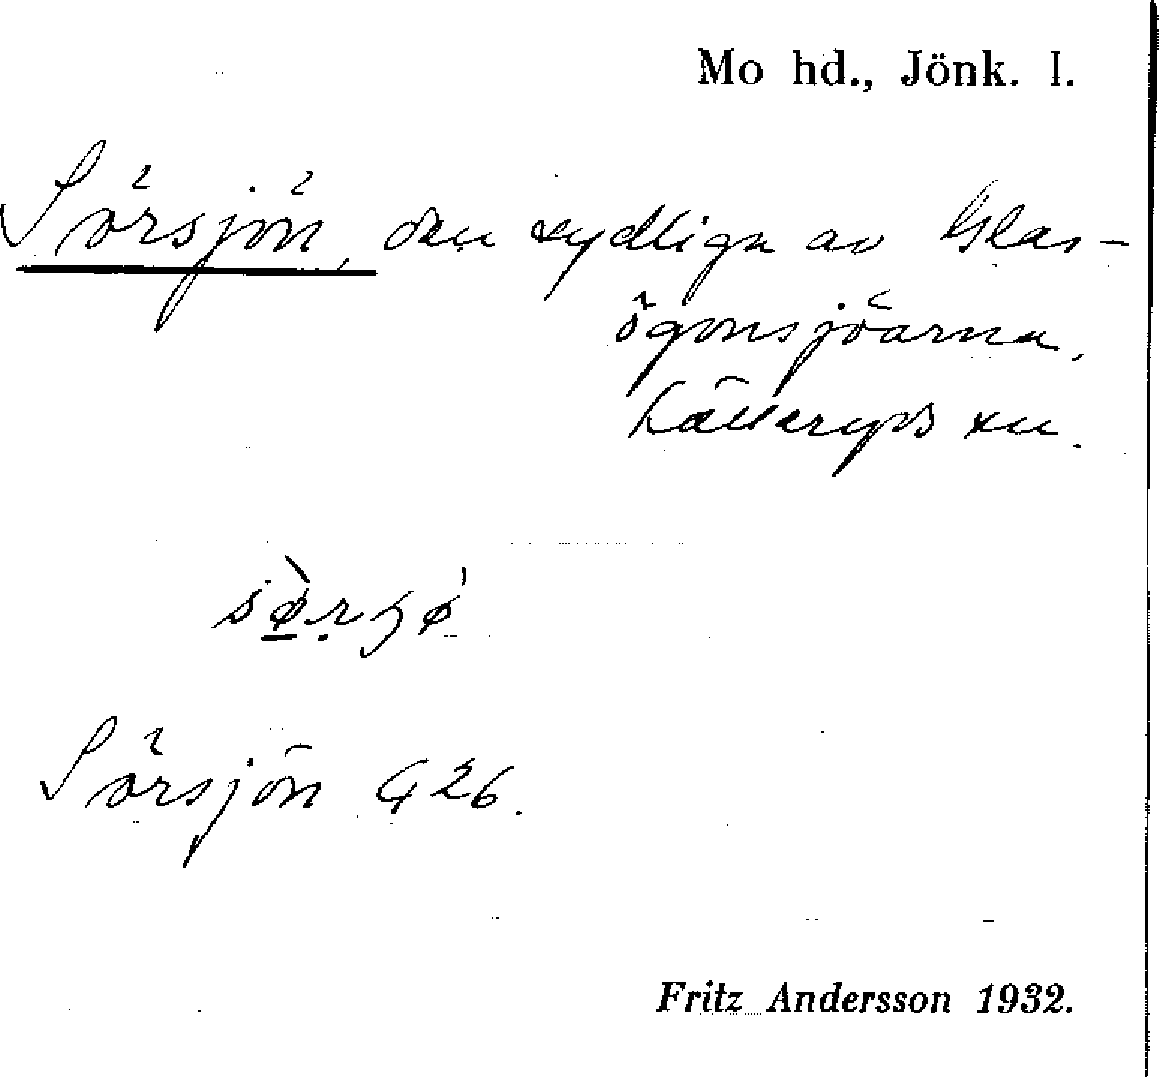 Mo hd., Jönk. l.
Sörsjön, den sydliga av Glas-
ögonsjöarna.
Källeryds sn.
Sörsjön G 26.
Fritz Andersson 1932.